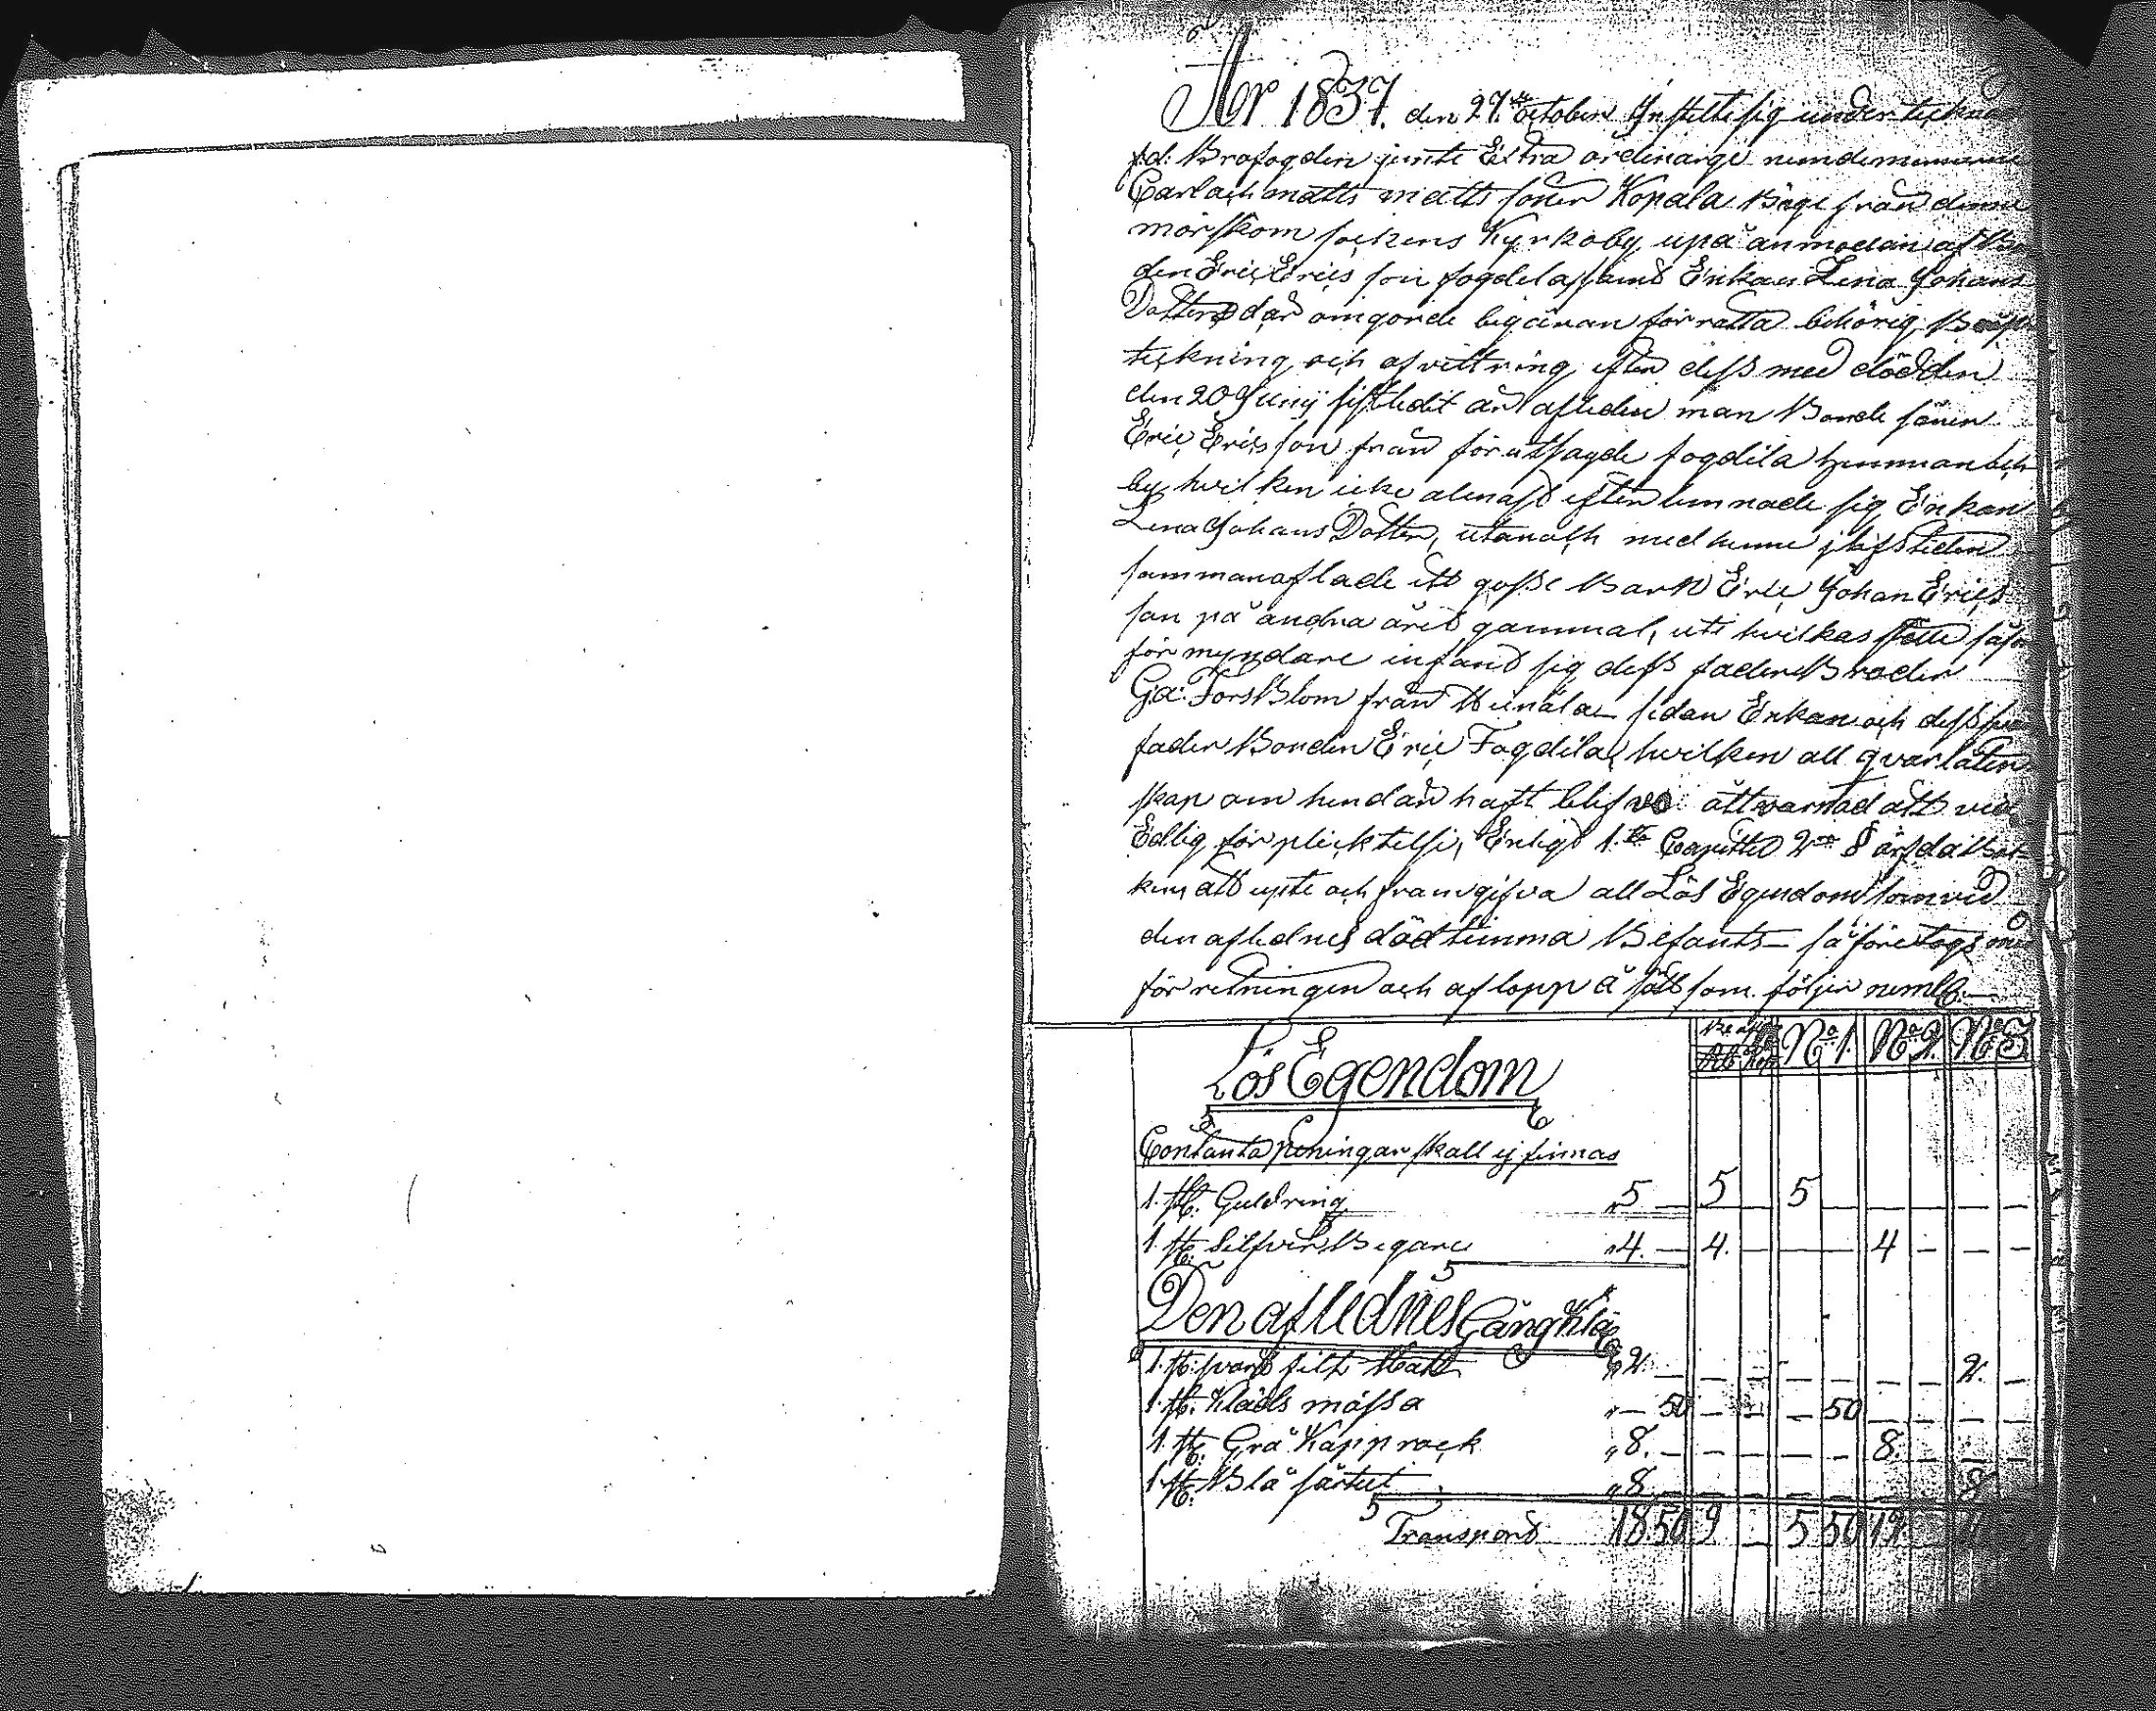 År 1837. den 27de october Instelte sig undertickna
f.d: Brofogden jemte Extra ordinarge nemdemannerne
Carl och matts matts soner Kopala Bäge från denne
mörskom sockens Kyrkoby, upå anmodan af
den Eric Erics son fogdila samt Enkan Lena Johans
Dotter där om gorde begäran för rätta behörig
teckning och afvittring efter dess med döden
den 20 Junij sistledit år afledne man Bonde sonen
Eric Erics son från förutsagde fogdila hemman och
by, hvilken icke alenast efterlemnade sig Enkan
Lena Johans Dotter, utan och med henne j lifstiden
sammanaflade ett gosse Barn Eric Johan Erics
son på andra året gammal, uti hvilkas ställe såsom
förmyndare infant sig dess faders Broder
Ga: Forsblom från sedan Enkan och dess
fader Bonden Eric Fogdila, hvilken all qvarlåten
skap om hender haft blef vo åttvarnad att vid
Edlig för plicktelse, Enligt 1:ta Capittel 2 § ärfda Bal-
ken, att upte och framgifva all Lös Egendom som vid
den aflednes dödstimma Befants så företogs
förretningen och aflopp å sätt som följer neml.
Lös Egendom
Rb Kop No 1. No 2. No 3
Contanta peningar skall ej finnas
1. st: Guldring " 5 — 5 — 5 — — — — —
1. st: Silfver Begare " 4. — 4. — — — 4 — — —
Den aflednes Gång Klä
1. st: svart filt Hatt " 2. — — — — — — — 2. —
1. st: Kläds mössa " — 50 — — — 50 — — — —
1. st: Grå Kapprock " 8. — — — — — 8. — — —
1. st: Blå sörtut " 8 — — — — — — — 8
Transport 18.50 9 — 5 50 12